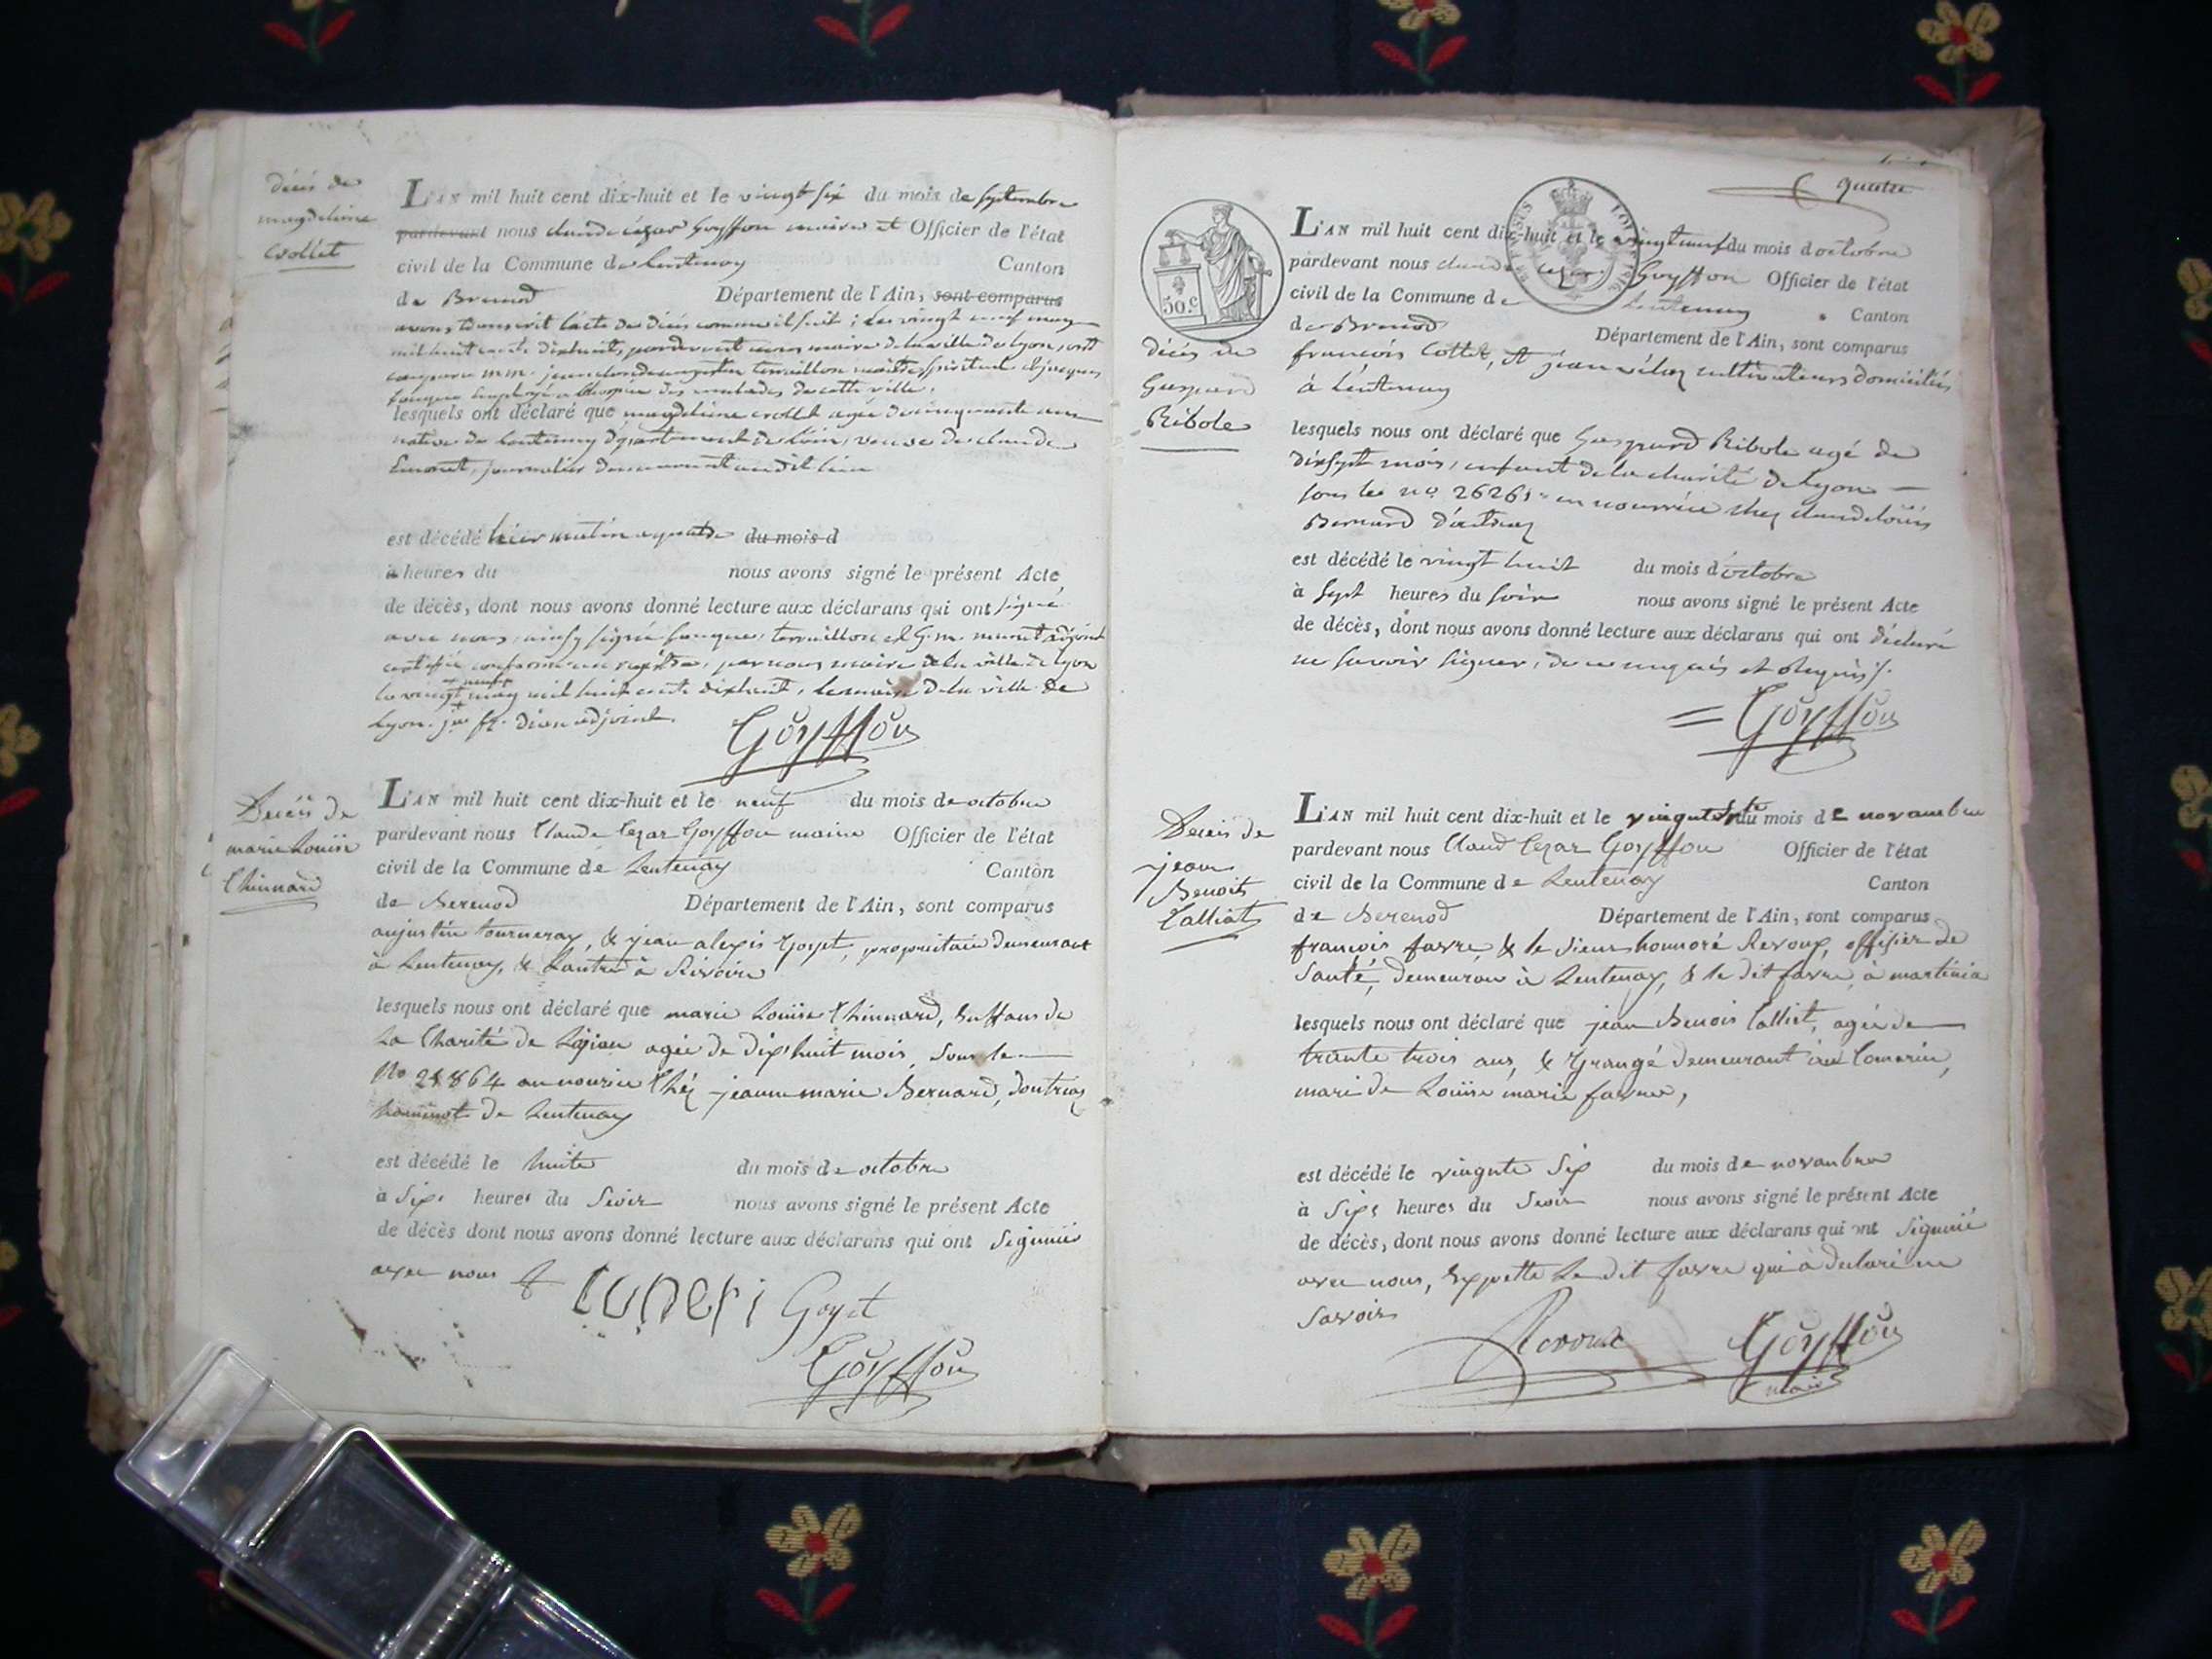 décès de
magdeleine
Collet
L'AN mil huit cent dix-huit et le vingt six du mois de septembre
pardevant nous claude cézar Goyffon maire et Officier de l'état
civil de la Commune de Lentenay Canton
de Brenod Département de l'Ain, sont comparus
avons transcrit l'acte de décès comme il suit; le vingt neuf may
mil huit cents dixhuit, pardevant nous maire de la ville de Lyon, ont
comparu mm. jean claude augustin terraillon maître spirituel et jacques
fouques employé a l'hospice des malades de cette ville,
lesquels ont déclaré que magdeleine collet agée de cinquante ans
native de Lentenay département de l'ain, veuve de claude
journalier demeurant audit lieu
est décédé hier matin a quatre du mois d
à heures du nous avons signé le présent Acte
de décès, dont nous avons donné lecture aux déclarans qui ont signé
avec nous, ainsy signé fouques, terraillon et G. m. muret adjoint
certifié conforme au registre, par nous maire de la ville de Lyon
le vingt neuf may mil huit cents dixhuit, le maire de la ville de
Lyon. adjoint
Goyffon
Decés de
marie Louise
Chinnard
L'AN mil huit cent dix-huit et le neuf du mois de octobre
pardevant nous Claude Cezar Goyffon maire Officier de l'état
civil de la Commune de Lentenay Canton
de Berenod Département de l'Ain, sont comparus
aujustin tourneray, & jean alexis Goyet, propriétaire demeurant
à Lentenay, & Lautre à Rivoire
lesquels nous ont déclaré que marie Louise Chinnard, Enffans de
La Charité de agée de dix'huit mois, sous le
No 28864 au nourice Chéz jeanne marie Bernard, doutriaz
hammot de Lentenay
est décédé le huite du mois de octobre
à Sixs heures du Seoir nous avons signé le présent Acte
de décès dont nous avons donné lecture aux déclarans qui ont Signiés
avec nous &
Goyet
Goyffon
quatre
50.C
L'AN mil huit cent dix-huit et le vingt neuf du mois d'octobre
pardevant nous claude cezar Goyffon Officier de l'état
civil de la Commune de Lentenay Canton
de Brenod Département de l'Ain, sont comparus
décès de
Gaspard
Ribole
francois Collet, et jean cultivateurs domiciliés
à Lentenay
lesquels nous ont déclaré que Gaspard Ribole agé de
dixsept mois, enfant de la charité de Lyon
sous le no. 26261 en nourrice chez claude Loüis
Bernard d'outriaz
est décédé le vingt huit du mois d'octobre
à sept heures du soir nous avons signé le présent Acte
de décès, dont nous avons donné lecture aux déclarans qui ont déclaré
ne savoir signer, de ce enquis et requis /.
Goyffon
Decés de
jean
Benoit
Calliat
L'AN mil huit cent dix-huit et le vingute sept du mois de novambre
pardevant nous Claud Cezar Goyffon Officier de l'état
civil de la Commune de Lentenay Canton
de Berenod Département de l'Ain, sont comparus
françois favre, & le sieur honnoré Revoux, offisier de
Santé, demeuran à Lentenay, & le dit favre, à martinia
lesquels nous ont déclaré que jean Benois Calliat, agée de
trante trois ans, & Grangé demeurant au Comerin,
mari de Louise marie favre,
est décédé le vingute Six du mois de novanbre
à Sixs heures du Seoir nous avons signé le présent Acte
de décès, dont nous avons donné lecture aux déclarans qui ont Signiié
avec nous, Expette Le dit favre qui à declaré ne
Savoir
Revoux
Goyffon
maire